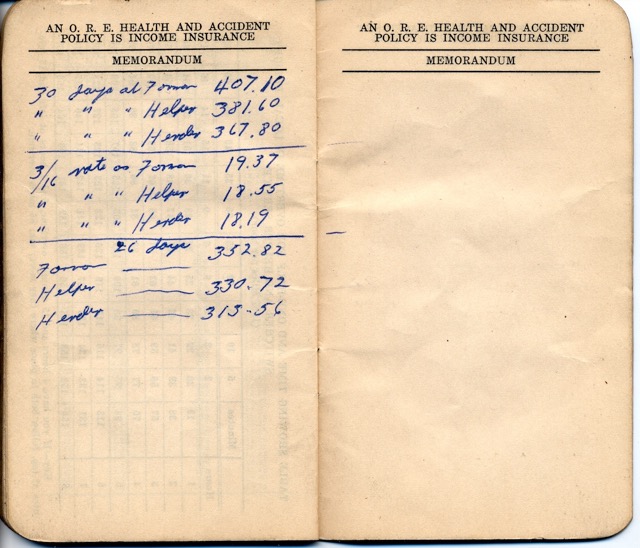 AN O. R. E. HEALTH AND ACCIDENT
POLICY IS INCOME INSURANCE
MEMORANDUM
30 days at Forman 407.10
" " " Helper 381.60
" " " Herder 367.80
3/16 rate as Forman 19.37
" " " Helper 18.55
" " " Herder 18.19
26 days
Forman —— 352.82
Helper —— 330.72
Herder —— 313.56
AN O. R. E. HEALTH AND ACCIDENT
POLICY IS INCOME INSURANCE
MEMORANDUM